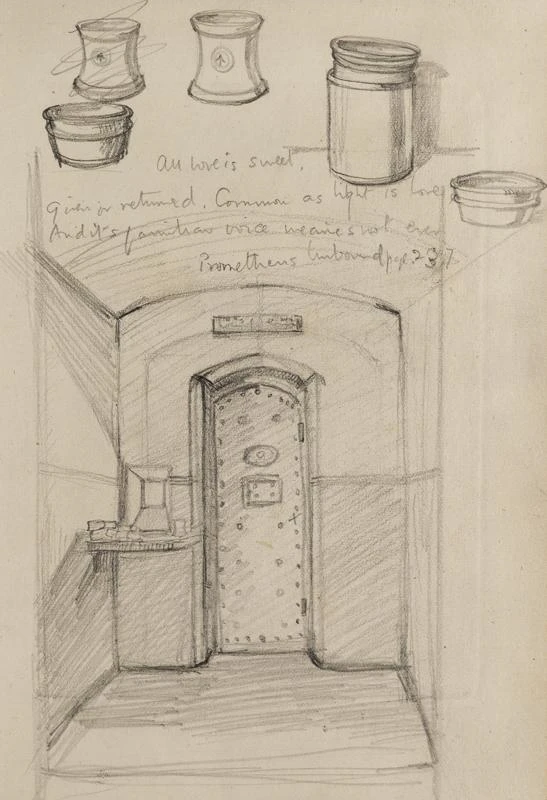 All love is sweet,
Given or returned. Common as light is love
And it's familiar voice wearies not ever
Prometheus Unbound page. 237